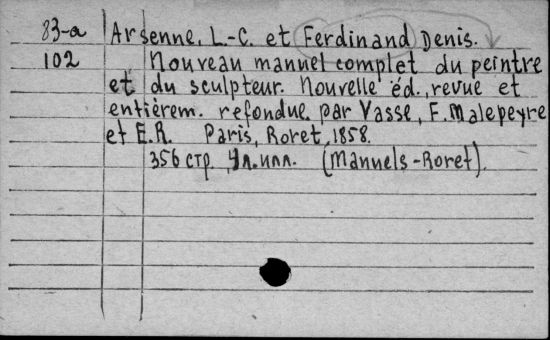 83-a Arsenne, L.-C. et Ferdinand Denis.
102 Nouveau manuel complet du peintre
et du sculpteur. Nouvelle éd., revue et
entièrem. refondue par Vasse, F. Malepeyre
et E.R. Paris, Roret, 1858.
356 стр., л.илл. (Manuels-Roret).